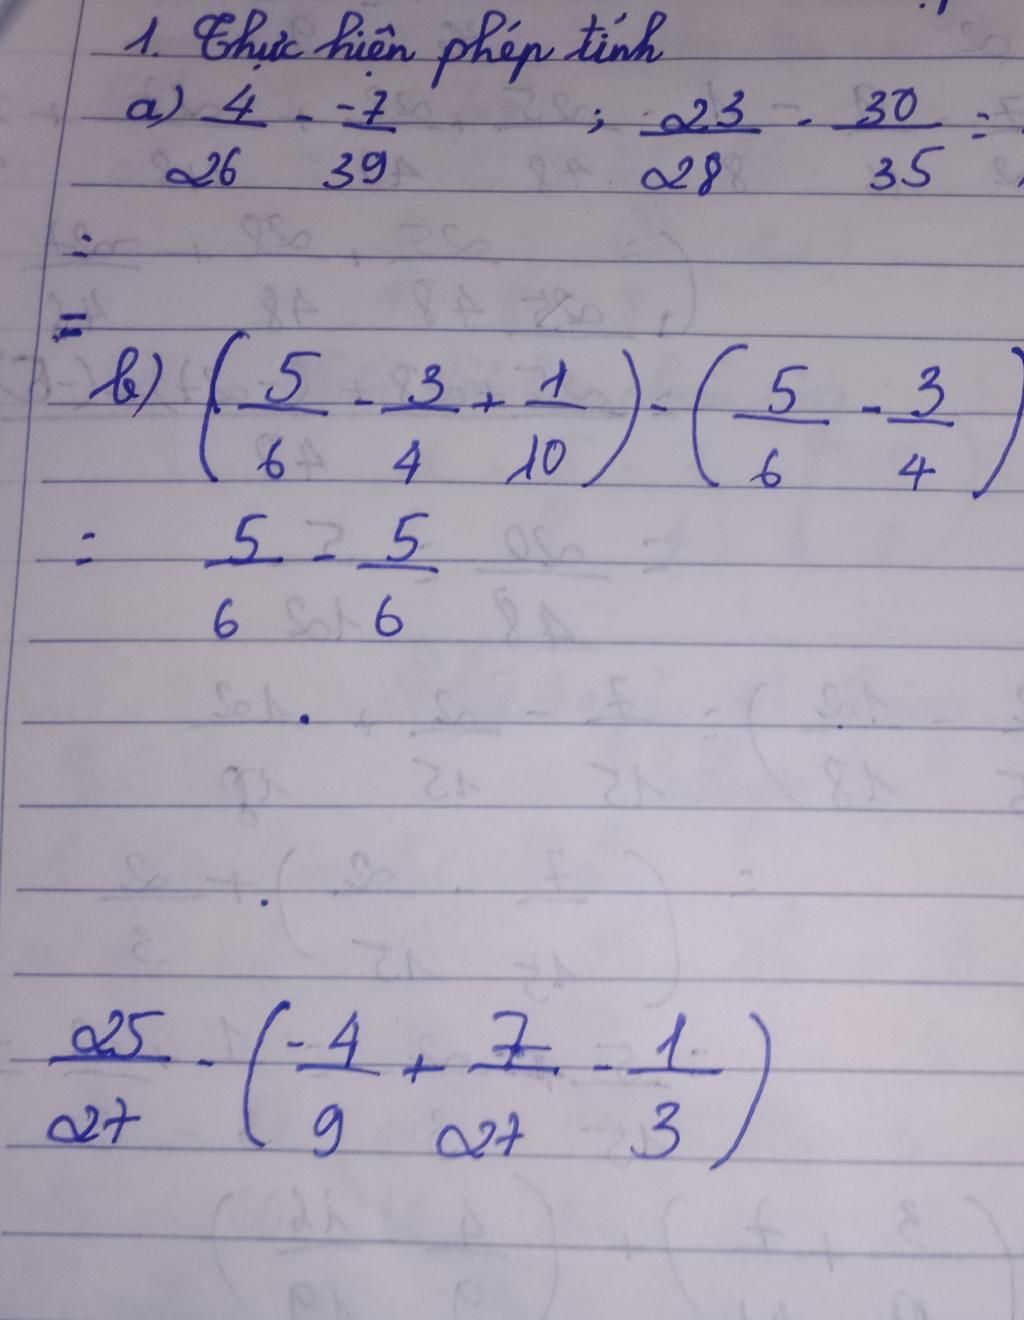 1. Thực hiện phép tính
a) 4/26 - -7/39 ; 23/28 - 30/35 =
=
=
b) (5/6 - 3/4 + 1/10) - (5/6 - 3/4)
= 5/6 - 5/6
25/27 - (-4/9 + 7/27 - 1/3)